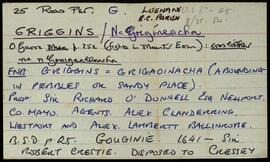 25 Ross Par. G. LUENANE
R.C. PARISH
GRIGGINS / Na Grigíneacha
p. 252
ENB GRIGGINS = GRIGAOINACHA (ABOUNDING
IN PEBBLES OR SANDY PLACE).
PROP: SIR RICHARD O'DONNELL ESQ NEWPORT
CO. MAYO. AGENTS. ALEX CLANDERRING
WESTPORT AND ALEX. LAMBERTT BALLINROBE.
B.S.D p. 25. GOUGINIE: 1641 - SIR
ROBERT CRESSIE. DISPOSED TO CRESSEY